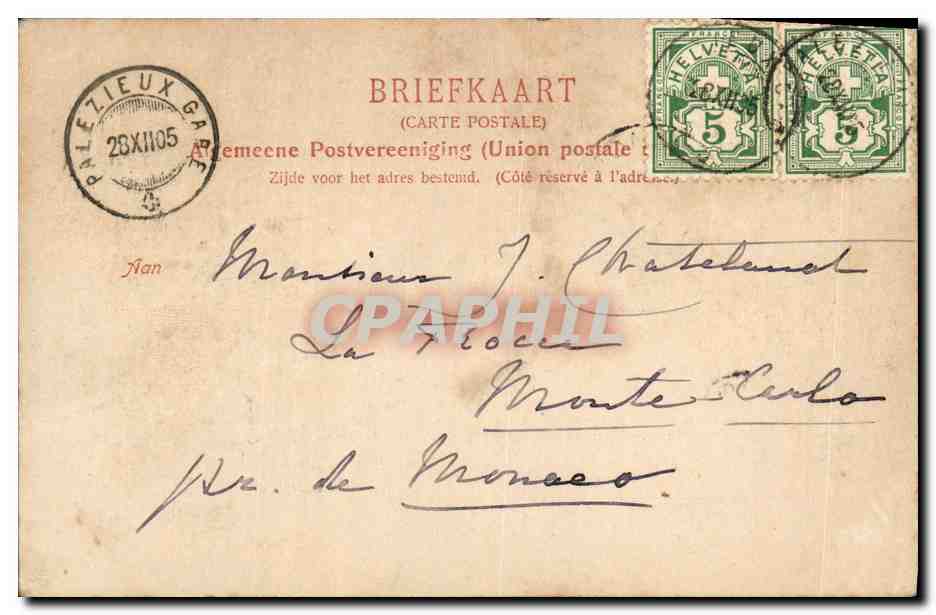 PALEZIEUX GARE
28XII05
BRIEFKAART
(CARTE POSTALE)
Algemeene Postvereeniging (Union postale
Zijde voor het adres bestemd. (Côté réservé à l'adresse.)
FRANCO
HELVETIA
28XII05
5
FRANCO
HELVETIA
5
Aan
Monsieur J. Chatelanat
CPAPHIL
La
Monte Carlo
pr. de Monaco